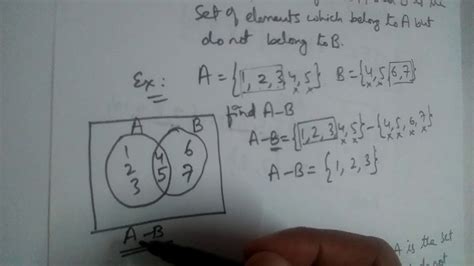 Set of elements which belong to A but
do not belong to B.
Ex: A = {1, 2, 3, 4, 5} B = {4, 5, 6, 7}
find A-B
A-B = {1, 2, 3, 4, 5} - {4, 5, 6, 7}
A-B = {1, 2, 3}
A B
1 4 6
2 5 7
3
A-B
A is the set